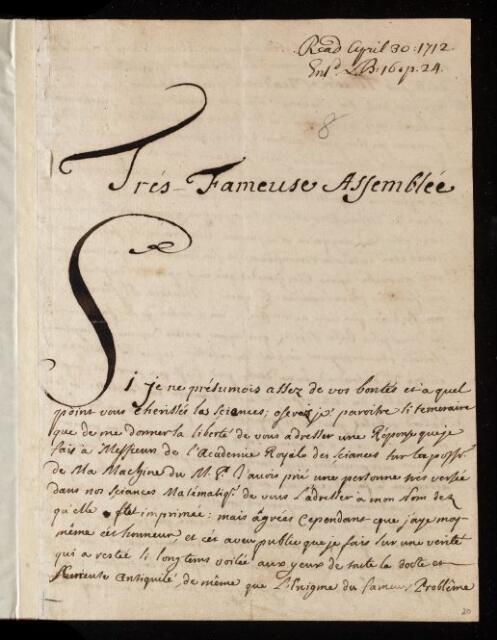 Read April 30: 1712
Entd. L.B. 16. p. 24.
8
Trés-Fameuse Assemblée
Si je ne présumois assez de vos bontés et a quel
point vous cherissés les sciances; oserois je paroitre si temeraire
que de me donner la liberté de vous adresser une Réponse que je
fais a Messieurs de l'Académie Royale des sciances sur la poss.
de Ma Machine du M. P. J'avois prié une personne tres versée
dans nos sciances Matématiq. de vous l'adresser a mon Nom dez
qu'elle fut imprimée: mais agréés Cependant que j'aye moy-
même cét honneur et cét aveu publique je fais sur une verité
qui a restée si longtems voilée aux yeux de toute la docte et
Antiquité, de même que L'Enigme du fameux Problême
20